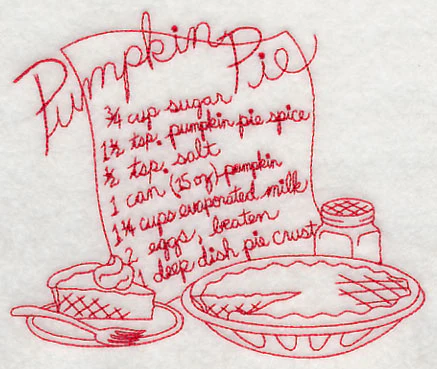 Pumpkin Pie
3/4 cup sugar
1 1/2 tsp. pumpkin pie spice
1/2 tsp. salt
1 can (15 oz) pumpkin
1 1/4 cups evaporated milk
2 eggs, beaten
1 deep dish pie crust